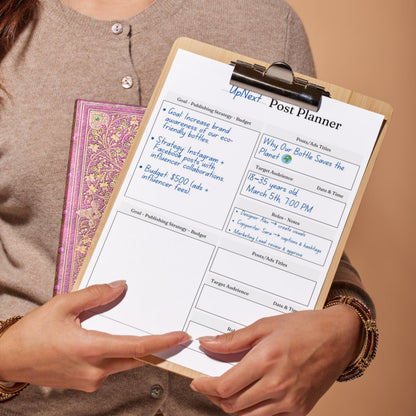 UpNext
Post Planner
Goal - Publishing Strategy - Budget
• Goal: Increase brand
awareness of our eco-
friendly bottles
• Strategy: Instagram +
Facebook posts with
influencer collaborations
• Budget: $500 (ads +
influencer fees)
Posts/Ads Titles
Why Our Bottle Saves the
Planet 🌍
Target Audeience
Date & Time
18–35 years old
March 5th, 7:00 PM
Roles - Notes
• Designer: Alex → create visuals
• Copywriter: Sara → captions & hashtags
• Marketing Lead: review & approve
Goal - Publishing Strategy - Budget
Posts/Ads Titles
Target Audeience
Date & Time